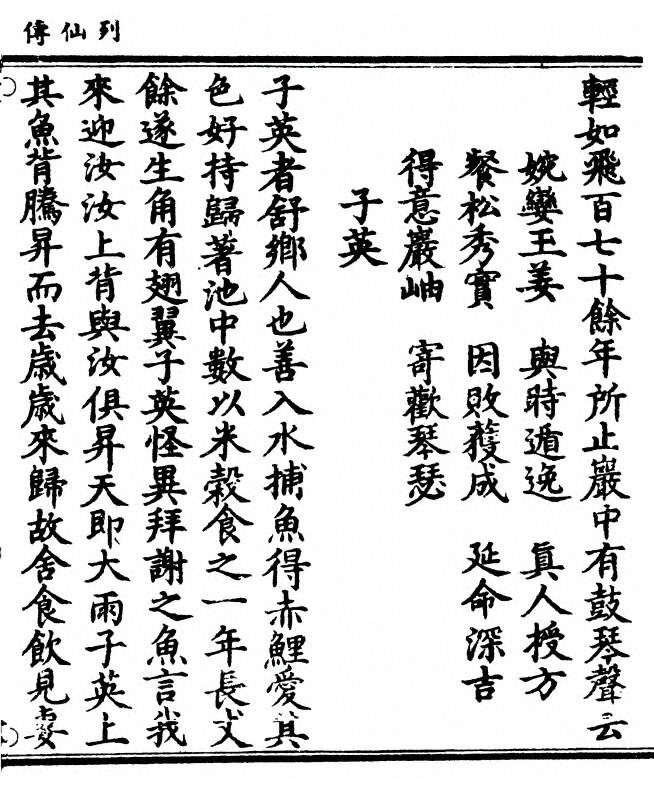 列仙傳
輕如飛百七十餘年所止巖中有鼓琴聲云
婉孌王姜 與時遁逸 真人授方
餐松秀實 因敗獲成 延命深吉
得意巖岫 寄歡琴瑟
子英
子英者舒鄉人也善入水捕魚得赤鯉愛其
色好持歸著池中數以米穀食之一年長丈
餘遂生角有翅翼子英怪異拜謝之魚言我
來迎汝汝上背與汝俱昇天即大雨子英上
其魚背騰昇而去歲歲來歸故舍食飲見妻